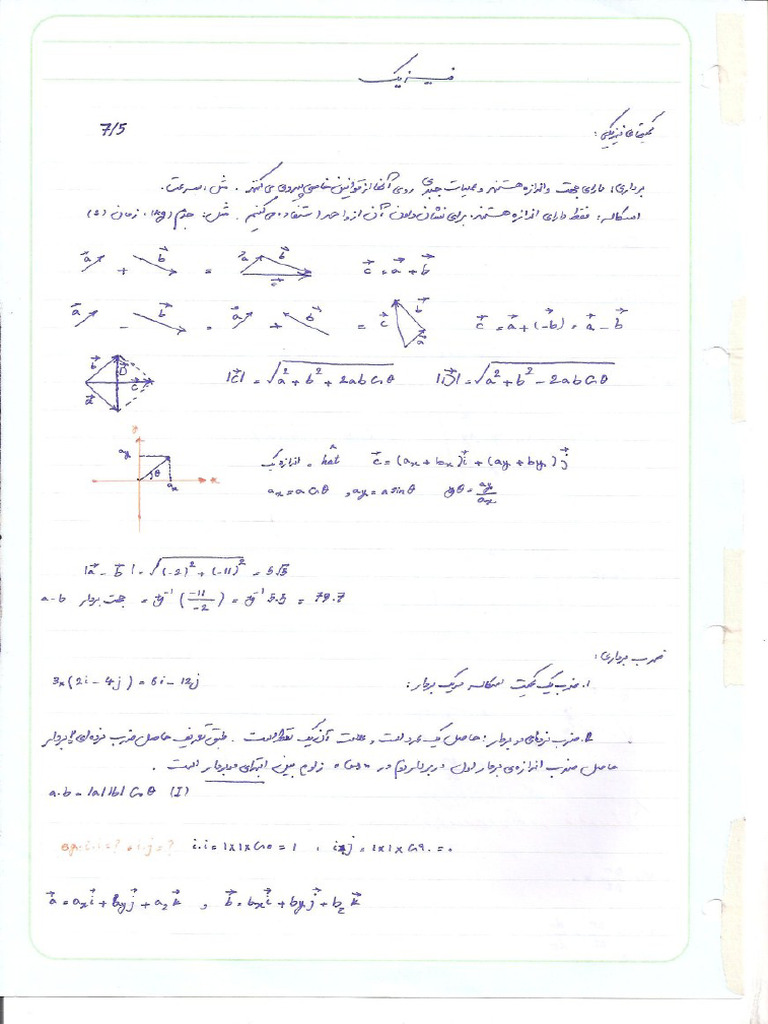 فیزیک
7/5
کمیتهای فیزیکی:
برداری: دارای جهت و اندازه هستند و عملیات جبری روی آنها از قوانین خاصی پیروی می کنند. مثل: سرعت.
اسکالر: فقط دارای اندازه هستند. برای نشان دادن آن از واحد استفاده می کنیم. مثل: جرم (kg)، زمان (s)
a⃗ + b⃗ = a⃗ b⃗ c⃗ c⃗ = a⃗ + b⃗
a⃗ − b⃗ = a⃗ + b⃗ = c⃗ b⃗ a⃗ c⃗ = a⃗ + (-b⃗) = a⃗ − b⃗
b⃗ D⃗ c⃗ a⃗ |c⃗| = √a² + b² + 2ab Cosθ |D⃗| = √a² + b² − 2ab Cosθ
y
ay θ ax x
اندازه یک = hat ^ c⃗ = (ax + bx) i⃗ + (ay + by) j⃗
ax = a Cosθ , ay = a sinθ tgθ = ay/ax
|a⃗ − b⃗| = √(-2)² + (-11)² = 5√5
a-b جهت بردار = tg⁻¹ (-11/-2) = tg⁻¹ 5.5 = 79.7
ضرب برداری:
۱. ضرب یک کمیت اسکالر در یک بردار: 3×(2i − 4j) = 6i − 12j
۲. ضرب نرده‌ای دو بردار: حاصل یک عدد است و علامت آن یک نقطه است. طبق تعریف حاصل ضرب نرده‌ای ۲ بردار
حاصل ضرب اندازه‌ی بردار اول در بردار دوم در cos زاویه بین ابتدای دو بردار است.
a.b = |a||b| Cosθ (I)
i.i = ? , i.j = ? i.i = 1×1×Cos0 = 1 , i×j = 1×1×Cos90 = 0
a⃗ = ax i⃗ + ay j⃗ + az k⃗ , b⃗ = bx i⃗ + by j⃗ + bz k⃗